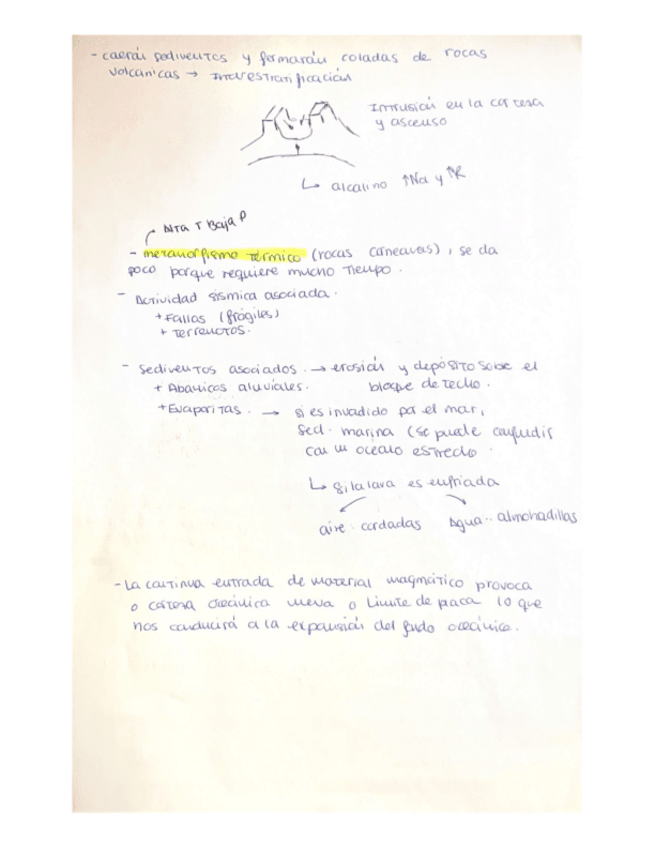 - caerán sedimentos y formarán coladas de rocas
volcánicas → Interestratificación
Intrusión en la corteza
y ascenso
↳ alcalino ↑Na y ↑K
Alta T Baja P
- metamorfismo térmico (rocas corneanas), se da
poco porque requiere mucho tiempo.
- Actividad sísmica asociada.
+ Fallas (frágiles)
+ Terremotos.
- Sedimentos asociados. → erosión y depósito sobre el
+ Abanicos aluviales. bloque de techo.
+ Evaporitas. → si es invadido por el mar,
sed. marina (se puede confundir
con un océano estrecho.
↳ si la lava es enfriada
aire: cordadas Agua: almohadillas
- La continua entrada de material magmático provoca
o corteza oceánica nueva o límite de placa lo que
nos conducirá a la expansión del fondo oceánico.